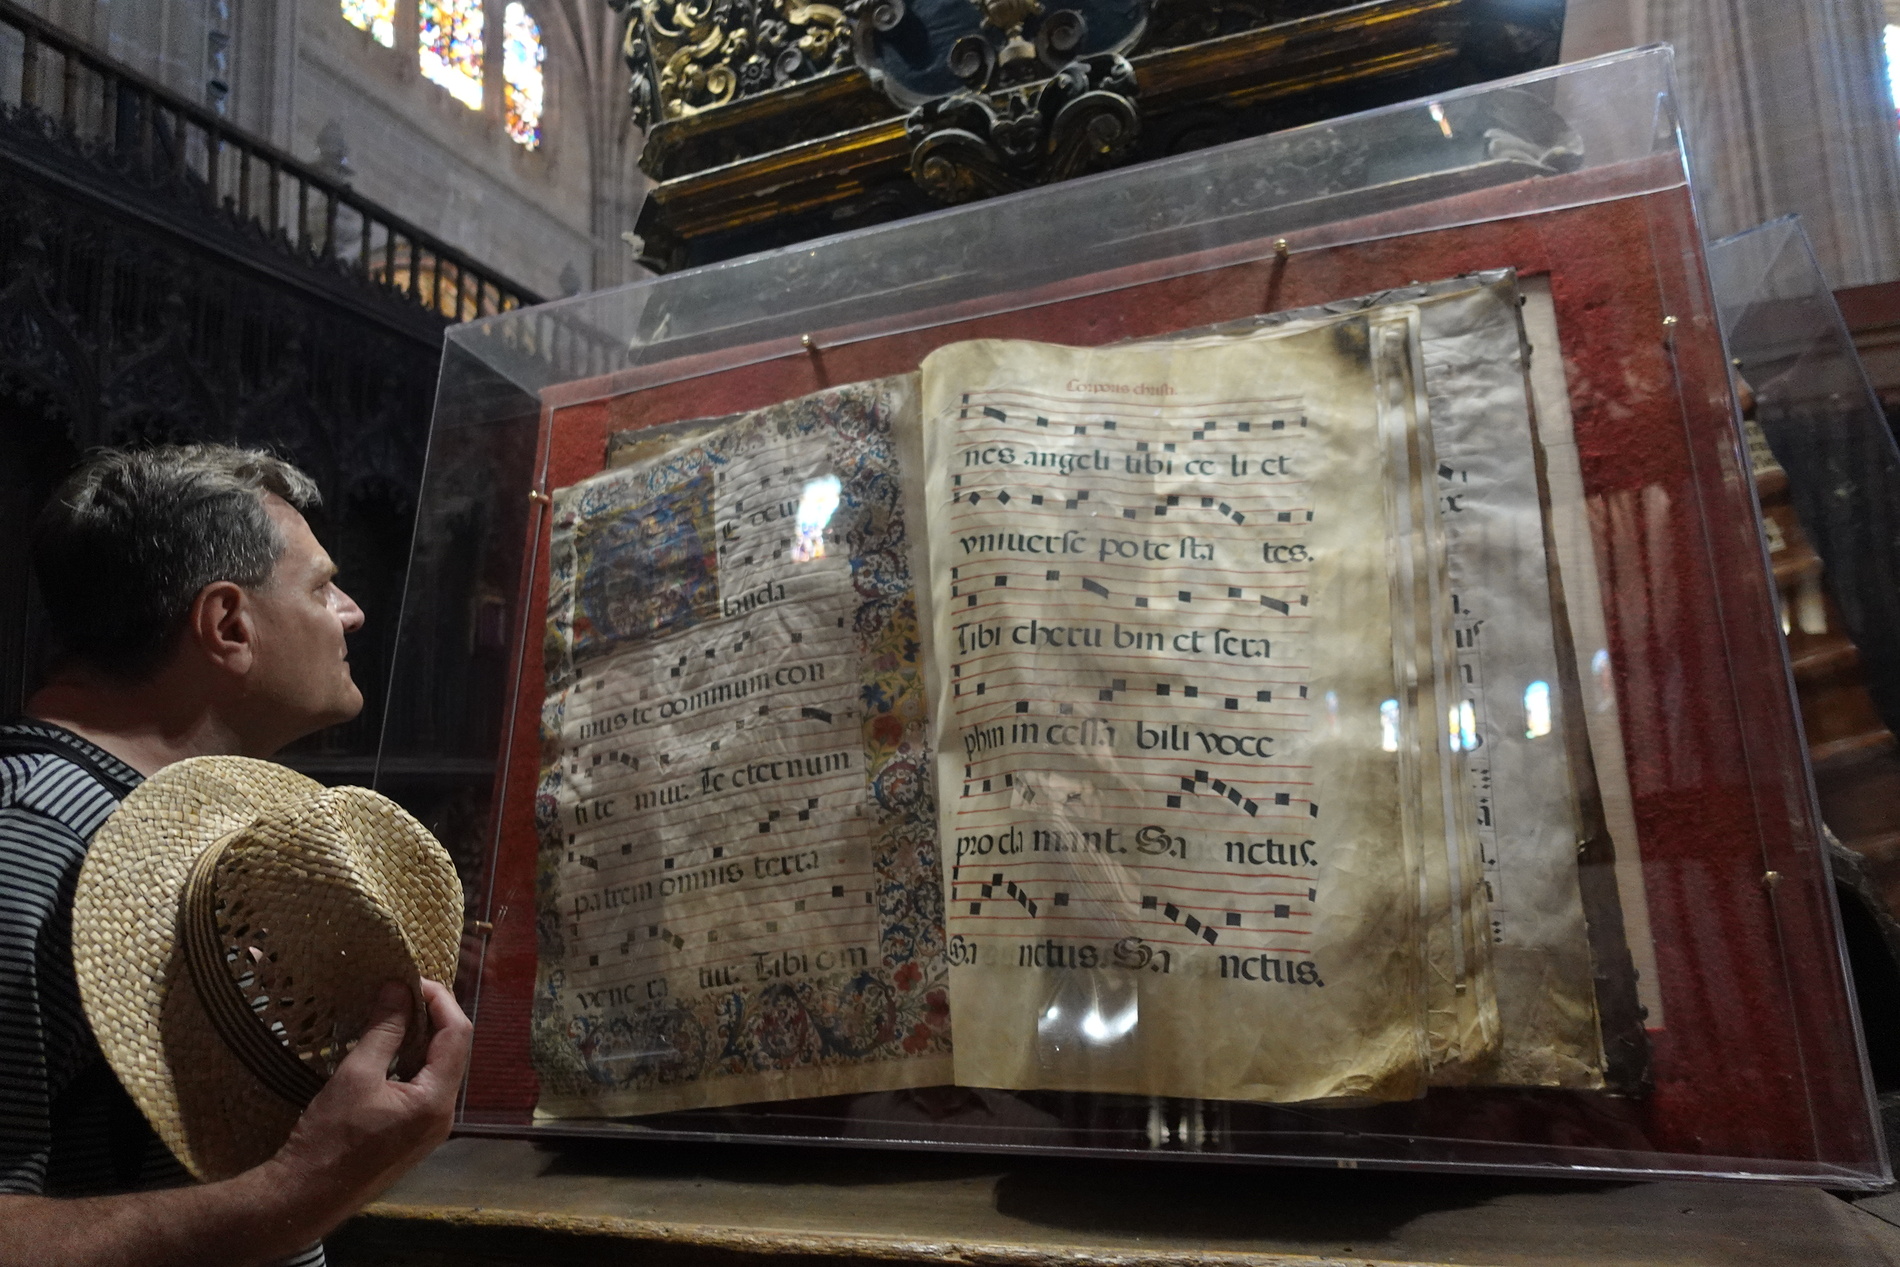 landa
mus te dominum con
fi te mur. Te eternum
patrem omnis terra
vene ra tur. Tibi om
Corporis christi.
nes angeli tibi ce li et
vniuerse po te sta tes.
Tibi cheru bin et sera
phin in cessa bili voce
pro cla mant. Sa nctus.
Sa nctus. Sa nctus.